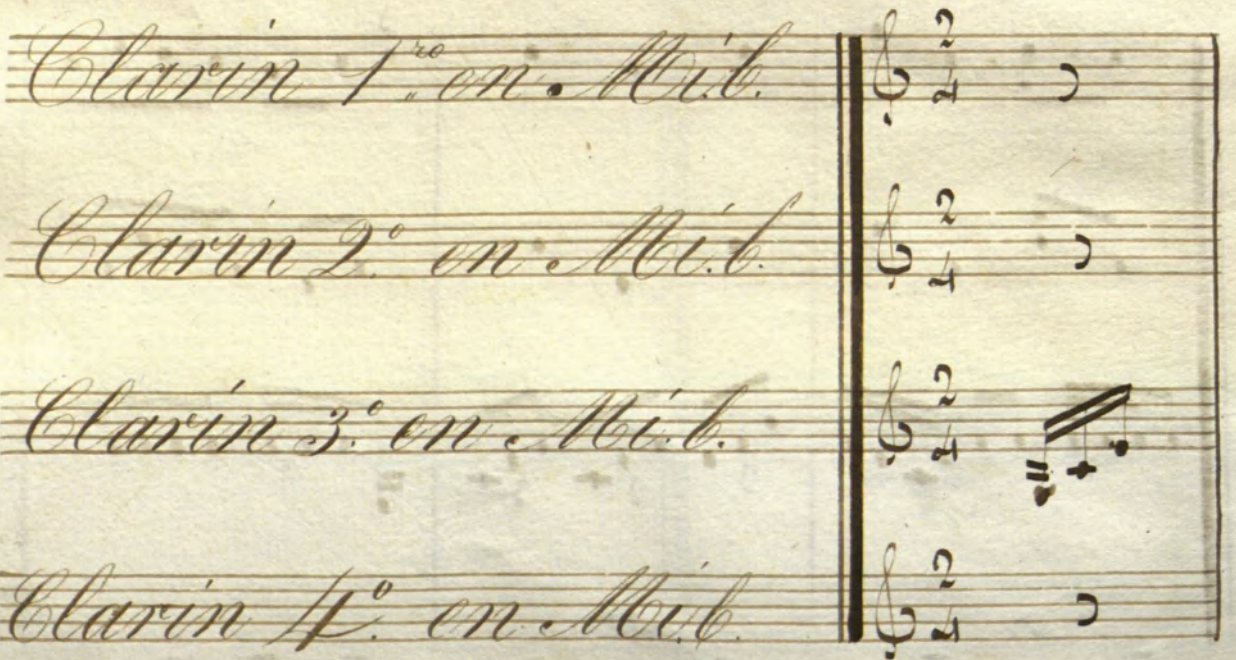 Clarin 1.ro en Mi.b. 2 4
Clarin 2.o en Mi.b. 2 4
Clarin 3.o en Mi.b. 2 4
Clarin 4.o en Mi.b. 2 4